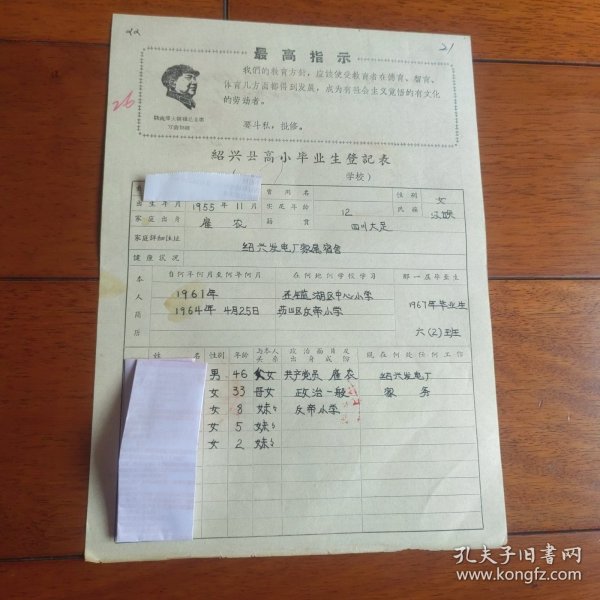 22
21
26
最高指示
我們的教育方針，应該使受教育者在德育、智育、
体育几方面都得到发展，成为有社会主义觉悟的有文化
的劳动者。
要斗私，批修。
万寿无疆
紹兴县高小毕业生登記表
（ ／ 学校）
曾用名 性別 女
出生年月 1955年11月 实足年龄 12 民族 汉
家庭出身 雇农 籍貫 四川大足
家庭詳細住址 绍兴发电厂家属宿舍
健康状况
本人簡历 自何年何月至何年何月 在何地何学校学习 那一届毕业生
1961年 湖区中心小学 1967年毕业生
1964年4月25日 反帝小学 六(2)班
姓名 性別 年龄 与本人关系 政治面貌及出身成份 現在何处任何工作
男 46 父女 共产党员 雇农 绍兴发电厂
女 33 母女 政治一般 家务
女 8 妹〃 反帝小学
女 5 妹〃
女 2 妹〃
孔夫子旧书网
www.kongfz.com